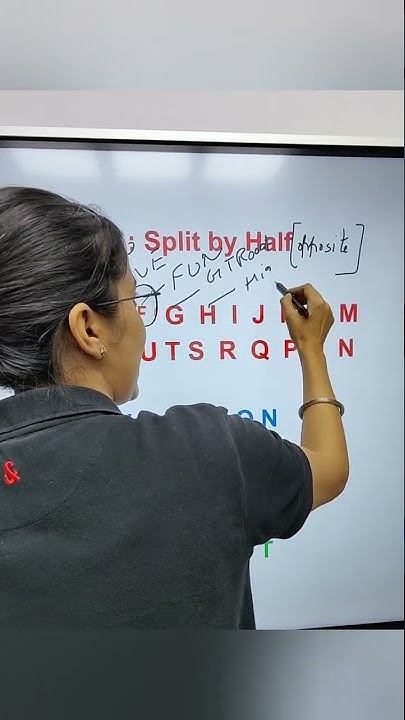 : Split by Half [opposite]
VE FUN GTRoad Hig
F G H I J M
U T S R Q P N
O N
T
&